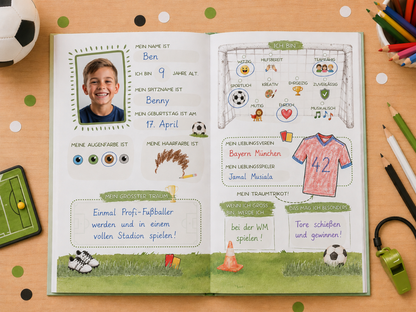 MEIN NAME IST
Ben
ICH BIN 9 JAHRE ALT
MEIN SPITZNAME IST
Benny
MEIN GEBURTSTAG IST AM
17. April
MEINE AUGENFARBE IST
MEINE HAARFARBE IST
MEIN GRÖSSTER TRAUM
Einmal Profi-Fußballer
werden und in einem
vollen Stadion spielen!
ICH BIN
WITZIG
HILFSBEREIT
TEAMFÄHIG
SPORTLICH
KREATIV
EHRGEIZIG
ZUVERLÄSSIG
MUTIG
EHRLICH
MUSIKALISCH
MEIN LIEBLINGSVEREIN
Bayern München
MEIN LIEBLINGSSPIELER
Jamal Musiala
42
MEIN TRAUMTRIKOT!
WENN ICH GROSS
BIN, WILL ICH
bei der WM
spielen!
DAS MAG ICH BESONDERS
Tore schießen
und gewinnen!